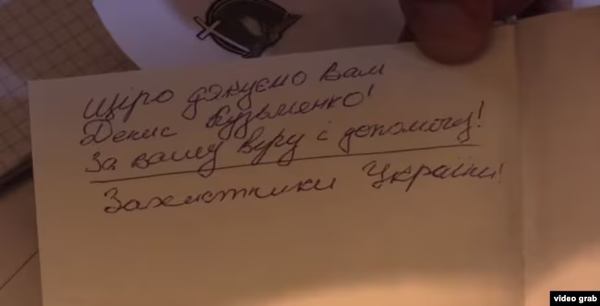 Щіро дякуємо Вам
Денис Кузьменко!
За вашу віру і допомогу!
Захистники України!
video grab